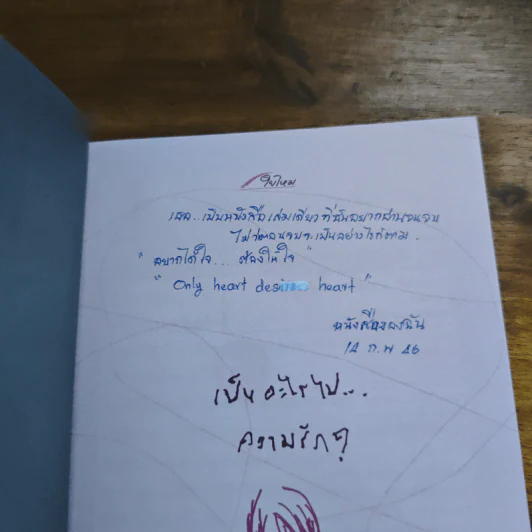 ใยไหม
เธอ..เป็นหนังสือเล่มเดียวที่ฉันอยากอ่านจนจบ
ไม่ว่าตอนจบจะเป็นอย่างไรก็ตาม.
"อยากได้ใจ... ต้องให้ใจ"
"Only heart desires heart"
หนังสือของฉัน
14 ก.พ 46
เป็นอะไรไป...
ความรัก